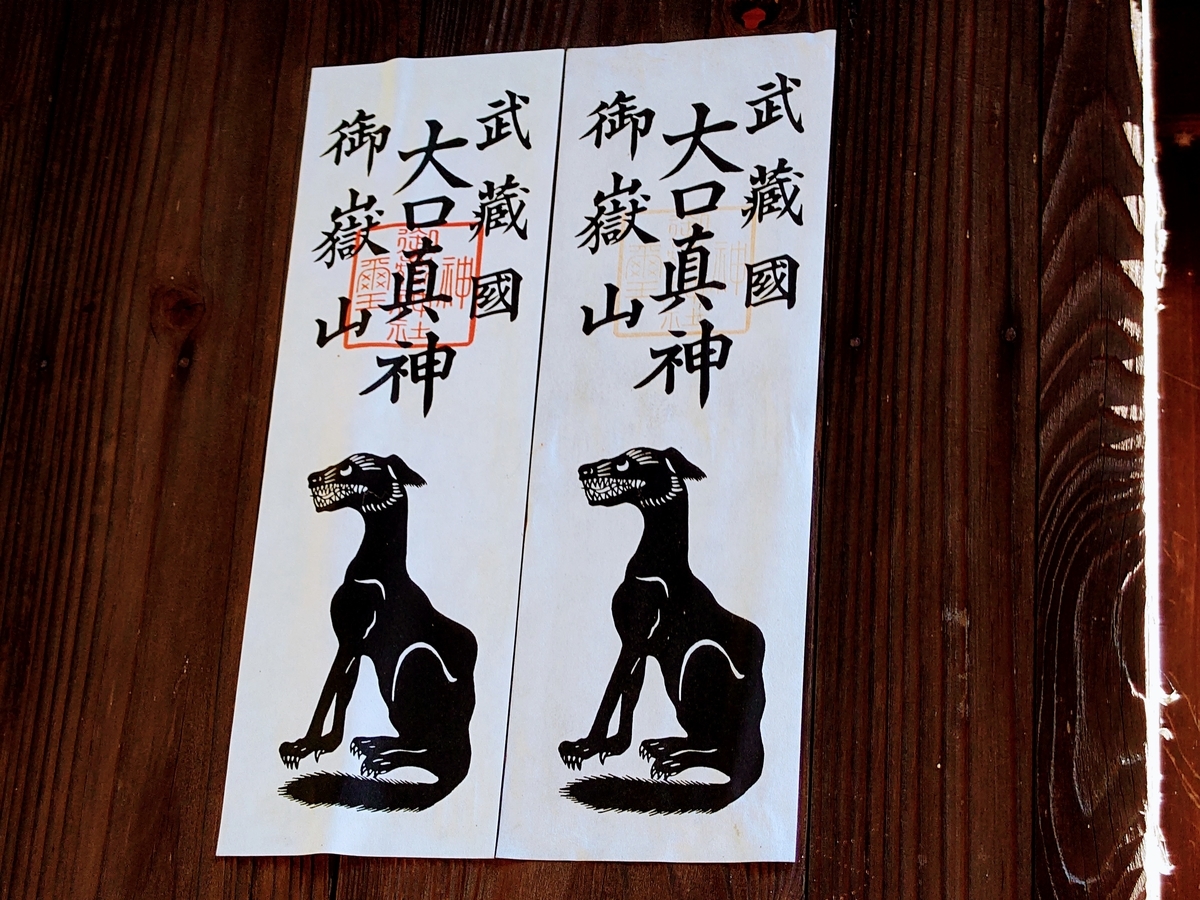 武藏國
大口真神
御嶽山
武藏國
大口真神
御嶽山